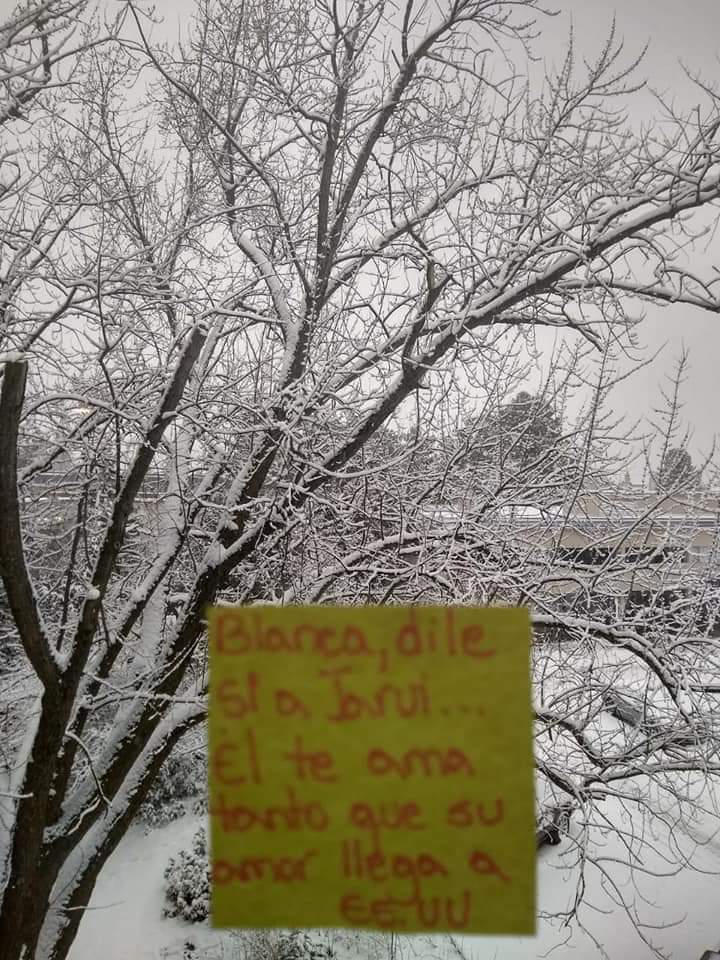 Blanca, dile
sí a Jarui...
Él te ama
tanto que su
amor llega a
EE.UU